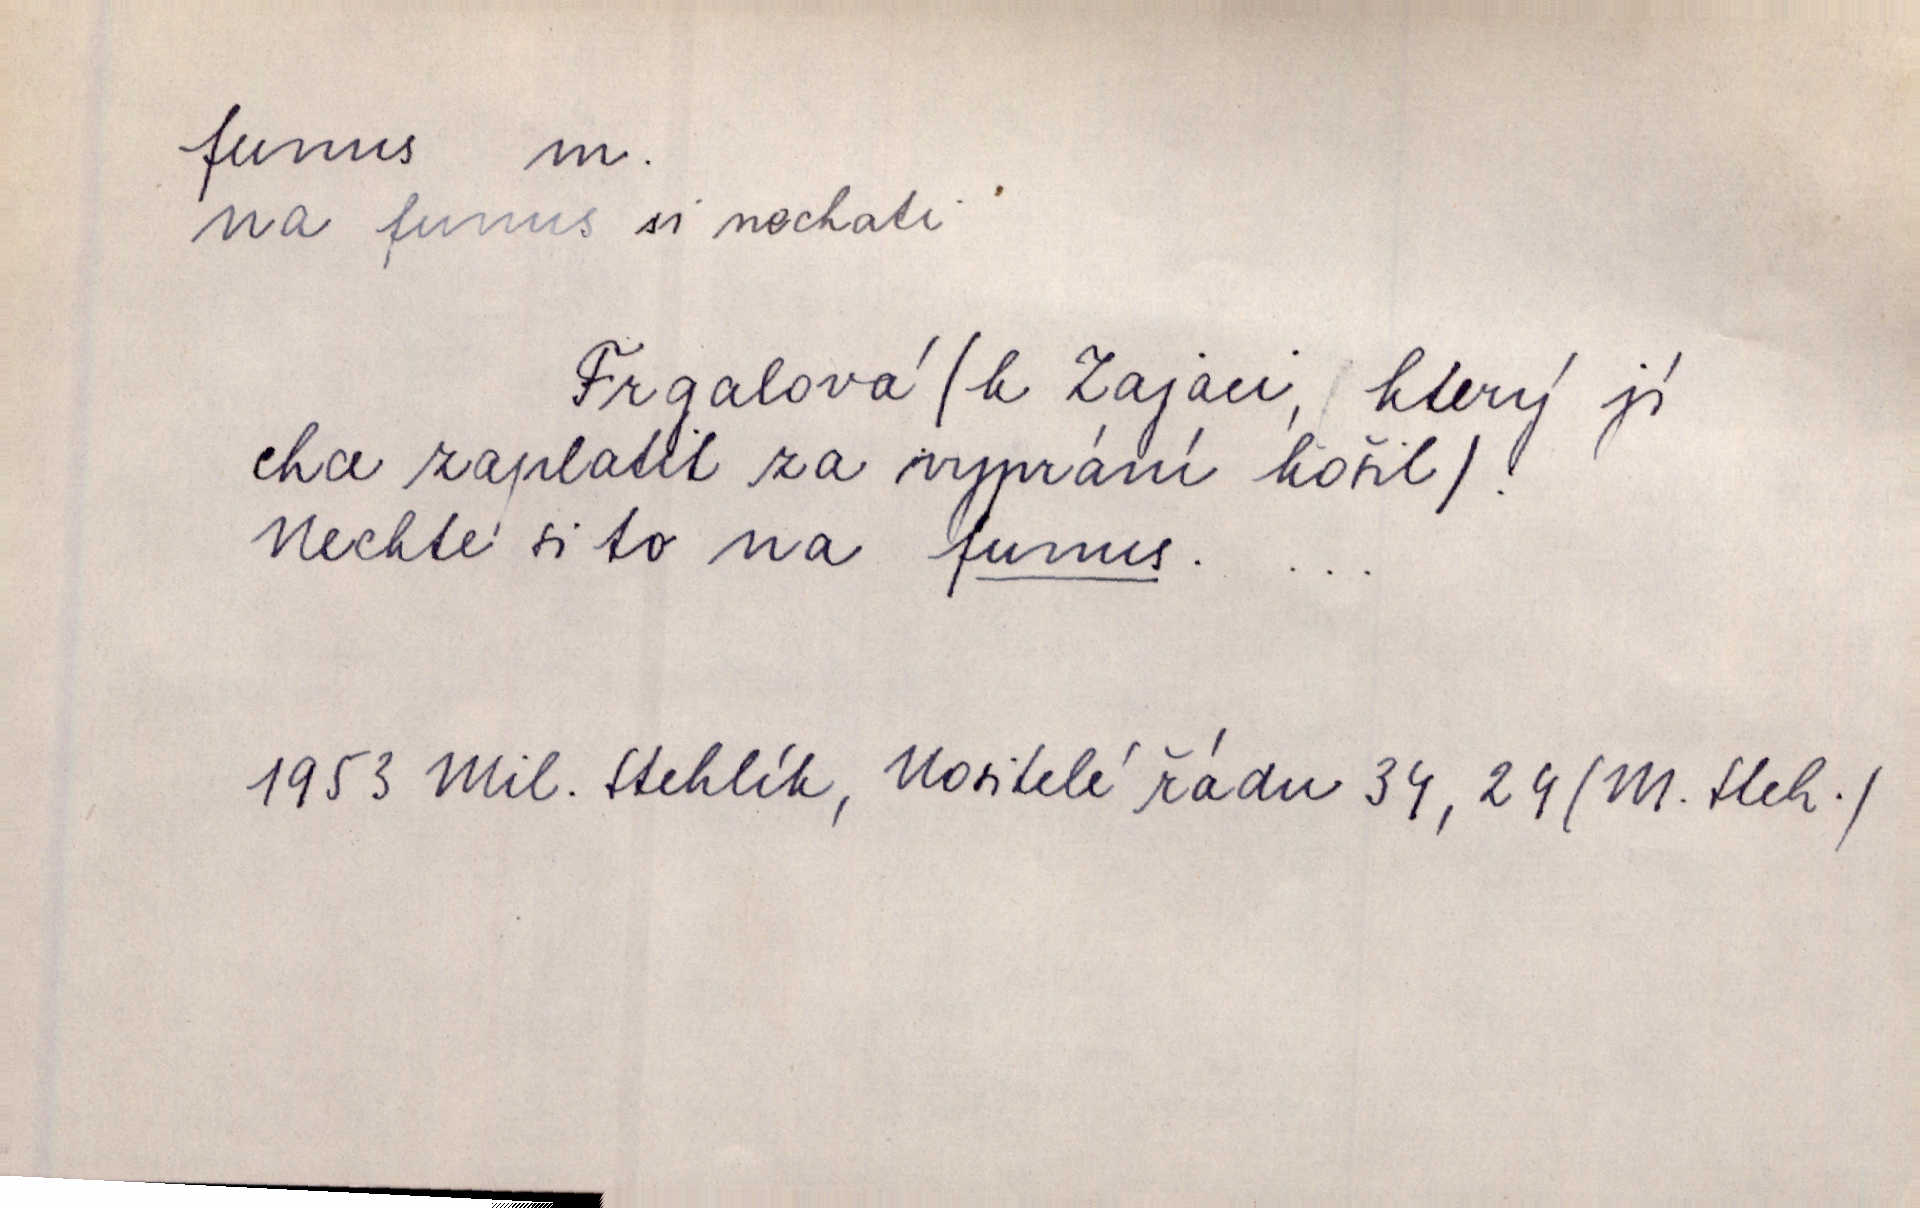 funus m.
na funus si nechati
Frgalová (k Zajaci, který jí
chce zaplatit za vyprání košil):
Nechte si to na funus. ...
1953 Mil. Stehlík, Nositelé řádu 34, 24 (M. Steh.)